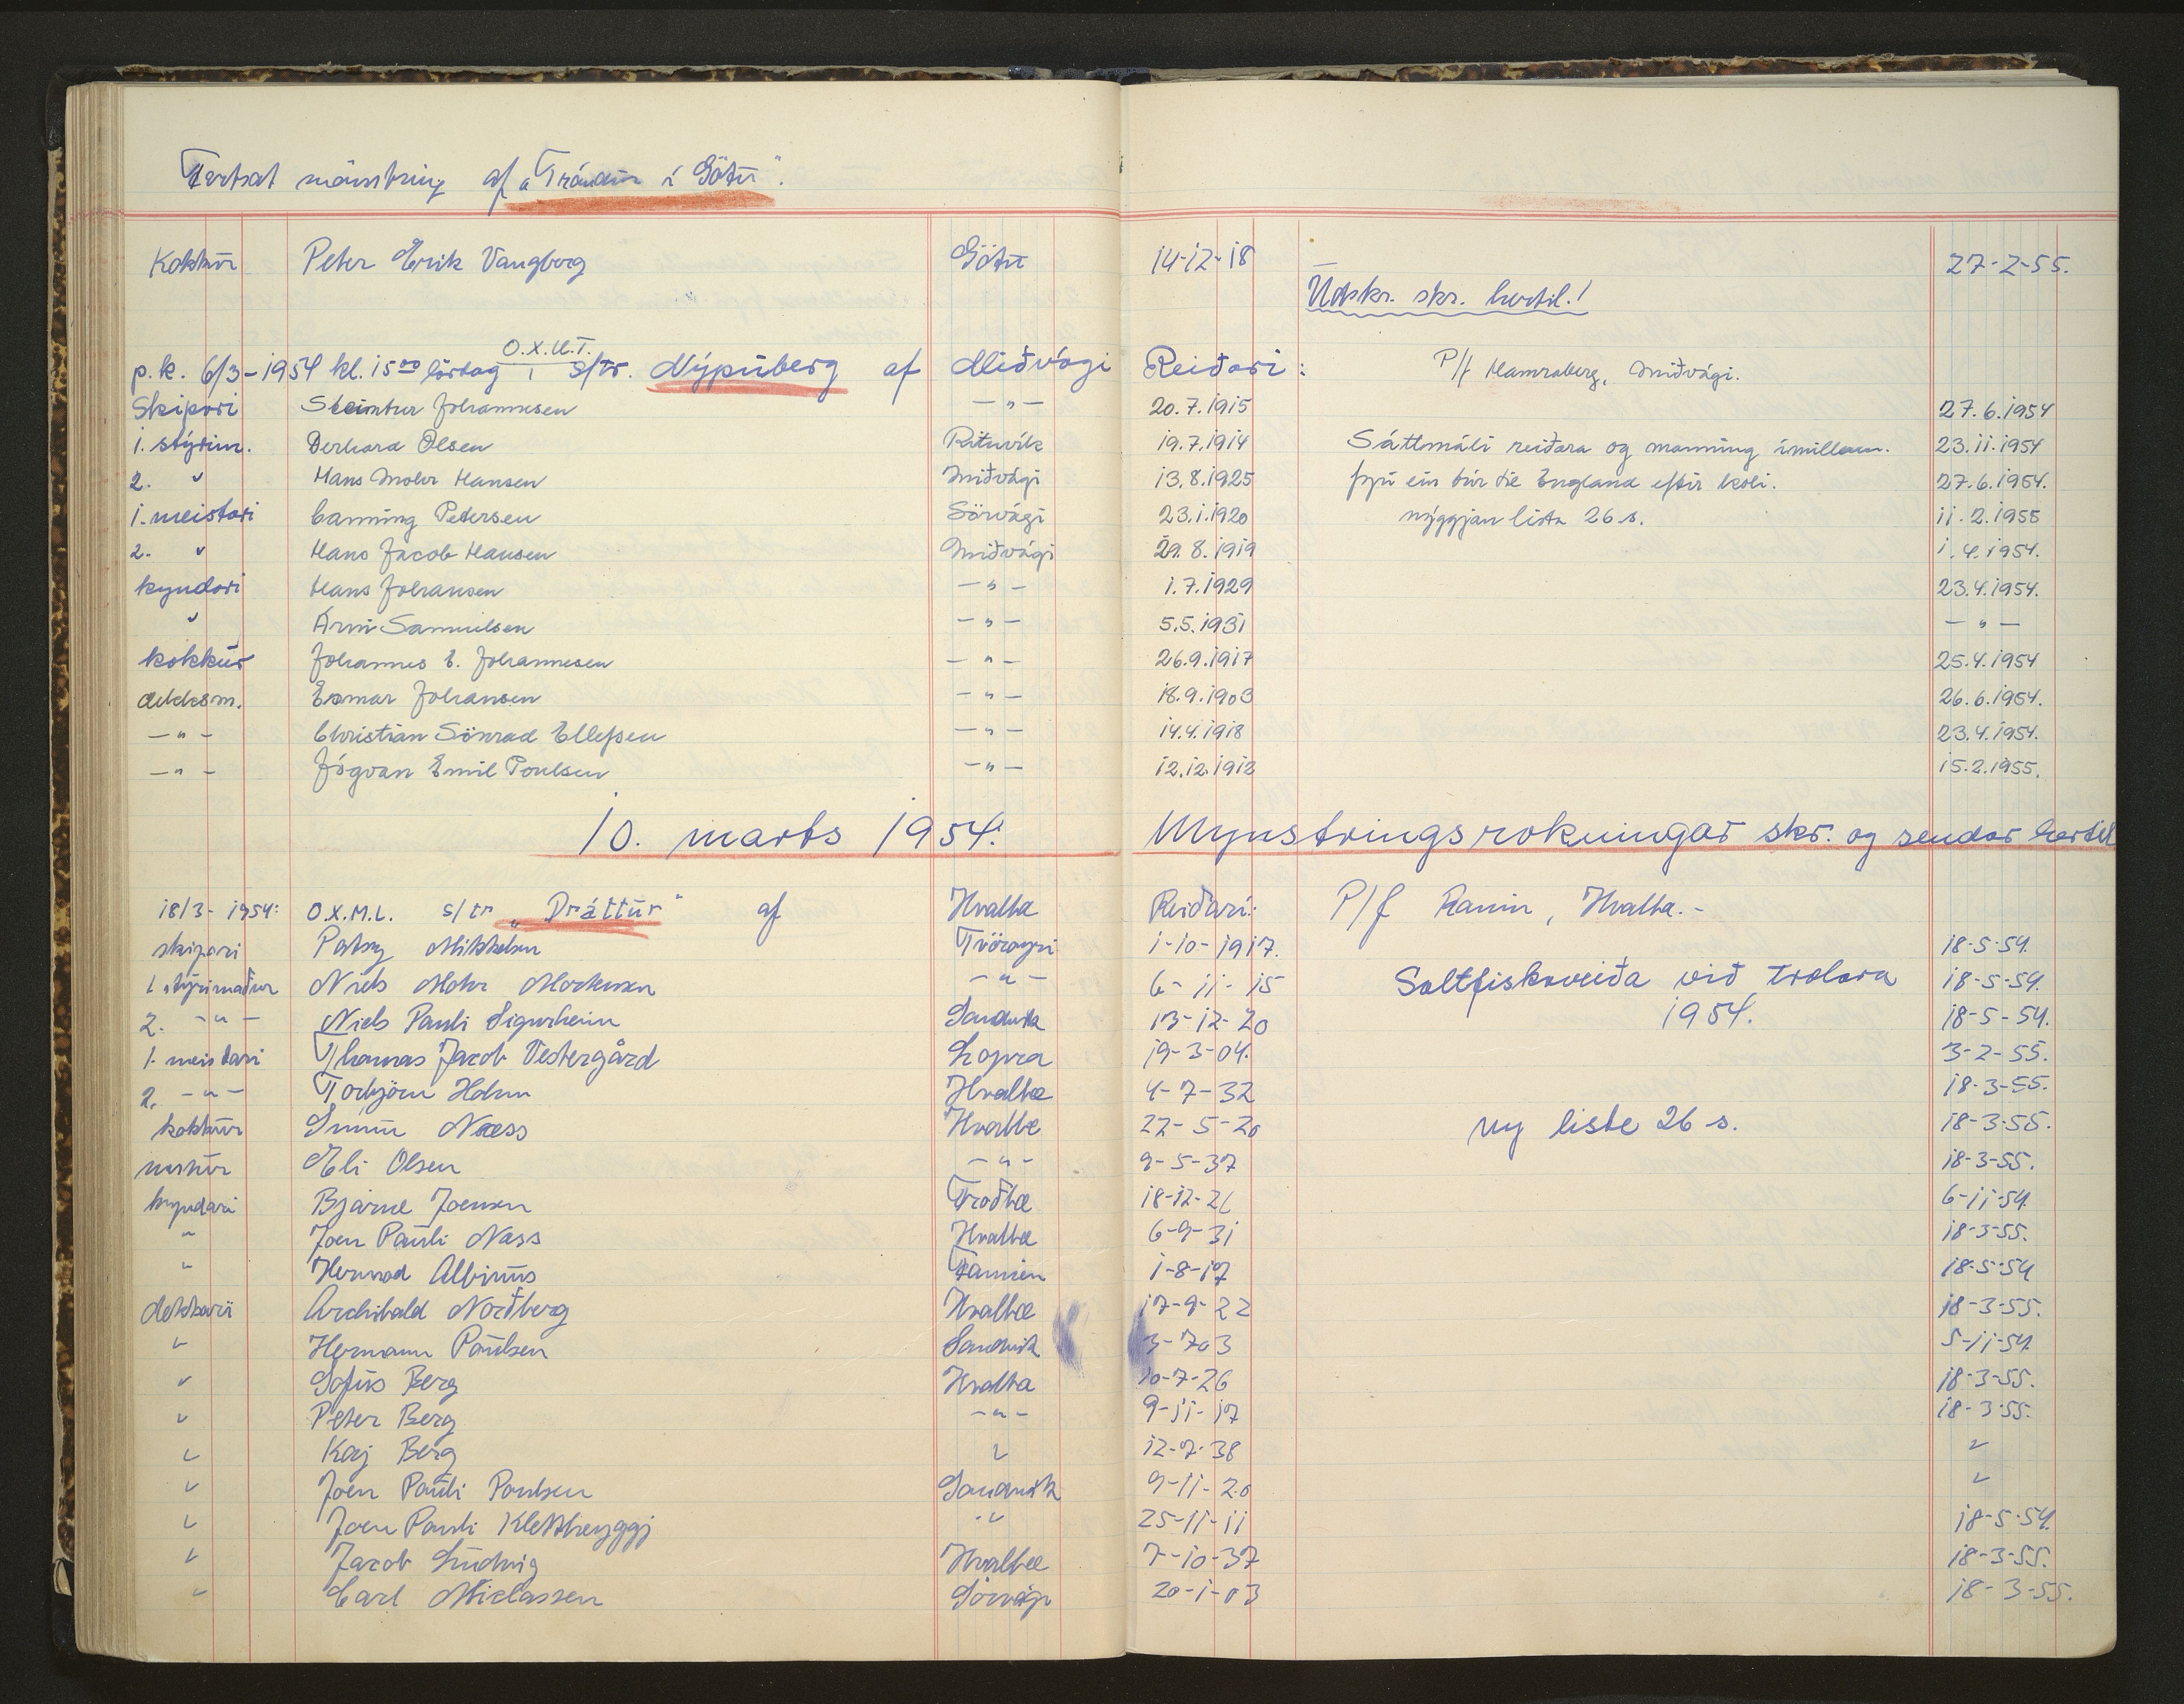 Fortsat mönstring af „Tróndur í Götu".
Kokkur Peter Erik Vangberg Götu 14-12-18 27-2-55.
Udskr. skr. hertil.!
O.X.U.T.
p.k. 6/3-1954 kl. 15⁰⁰ lördag i s/tr. Nýpuberg af Miðvági Reiðari: P/f Hamraberg, Miðvági.
Skipari Steintur Johannesen -"- 20.7.1915 27.6.1954
1. stýrim. Gerhard Olsen Rituvík 19.7.1914 Sáttmáli reiðara og manning ímillum. 23.11.1954
2. " Hans Mohr Hansen Miðvági 13.8.1925 fyri ein túr til England eftir koli. 27.6.1954.
1. meistari Canning Petersen Sörvági 23.1.1920 nýggjan lista 26 s. 11.2.1955
2. " Hans Jacob Hansen Miðvági 29.8.1919 1.4.1954.
kyndari Hans Johansen -"- 1.7.1929 23.4.1954.
" Arni Samuelsen -"- 5.5.1931 -"-
kokkur Johannes E. Johannesen -"- 26.9.1917 25.4.1954
dekksm. Esmar Johansen -"- 18.9.1903 26.6.1954.
-"- Christian Sönrad Ellefsen -"- 14.4.1918 23.4.1954.
-"- Jógvan Emil Poulsen -"- 12.12.1912 15.2.1955.
10. marts 1954. Mynstringsrokningar skr. og sendar hertil
18/3-1954: O.X.M.L. s/tr „Dráttur" af Hvalba Reiðari: P/f Ranin, Hvalba.-
skipari Patsy Mikkelsen Tvöroyri 1-10-1917. 18-5-54.
1. stýrimaður Niels Mohr Mortensen -"- 6-11-15 Saltfiskaveiða við trolara 18-5-54.
2. -"- Niels Pauli Sigurheim Sandvík 13-12-20 1954. 18-5-54.
1. meistari Thomas Jacob Vestergård Lopra 19-3-04. 3-2-55.
2. -"- Torbjörn Holm Hvalba 4-7-32 18-3-55.
kokkur Sunin Næss Hvalba 22-5-20 ny liste 26 s. 18-3-55.
Eli Olsen -"- 9-5-37 18-3-55.
kyndari Bjarne Joensen Froðba 18-12-26 6-11-54
" Joen Pauli Næss Hvalba 6-9-31 18-3-55.
" Albinus Famien 1-8-17 18-5-54
dekkari Archibald Norðberg Hvalba 17-9-22 18-3-55.
" Hermann Paulsen Sandvík 3-7-03 5-11-54
" Sofus Berg Hvalba 10-7-26 18-3-55.
" Peter Berg -"- 9-11-17 18-3-55.
" Kaj Berg " 12-7-38 "
" Joen Pauli Poulsen Sandvík 9-11-20 "
" Joen Pauli Klettheyggj " 25-11-11 18-5-54.
" Jacob Ludvig Hvalba 7-10-37 18-3-55.
" Carl Niclassen Sörvági 20-1-03 18-3-55.